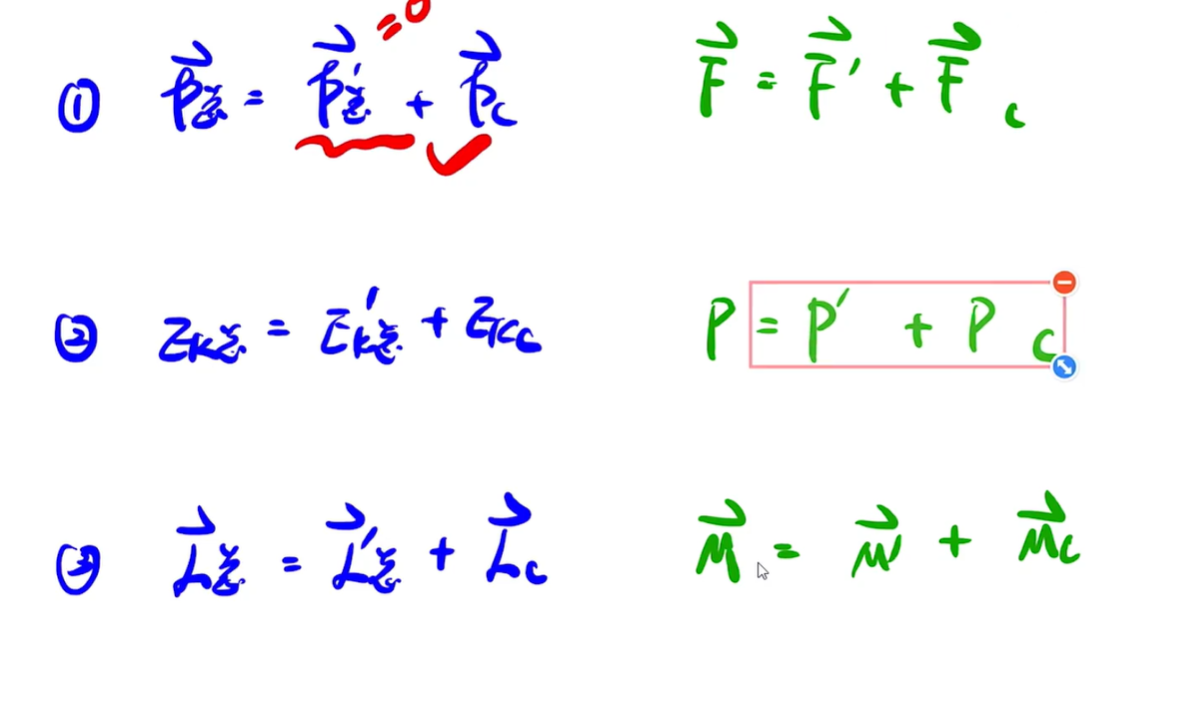 =0
① p⃗总 = p⃗'总 + p⃗c F⃗ = F⃗' + F⃗c
② Ek总 = Ek'总 + Ekc P = P' + Pc
③ L⃗总 = L⃗'总 + L⃗c M⃗ = M⃗' + M⃗c